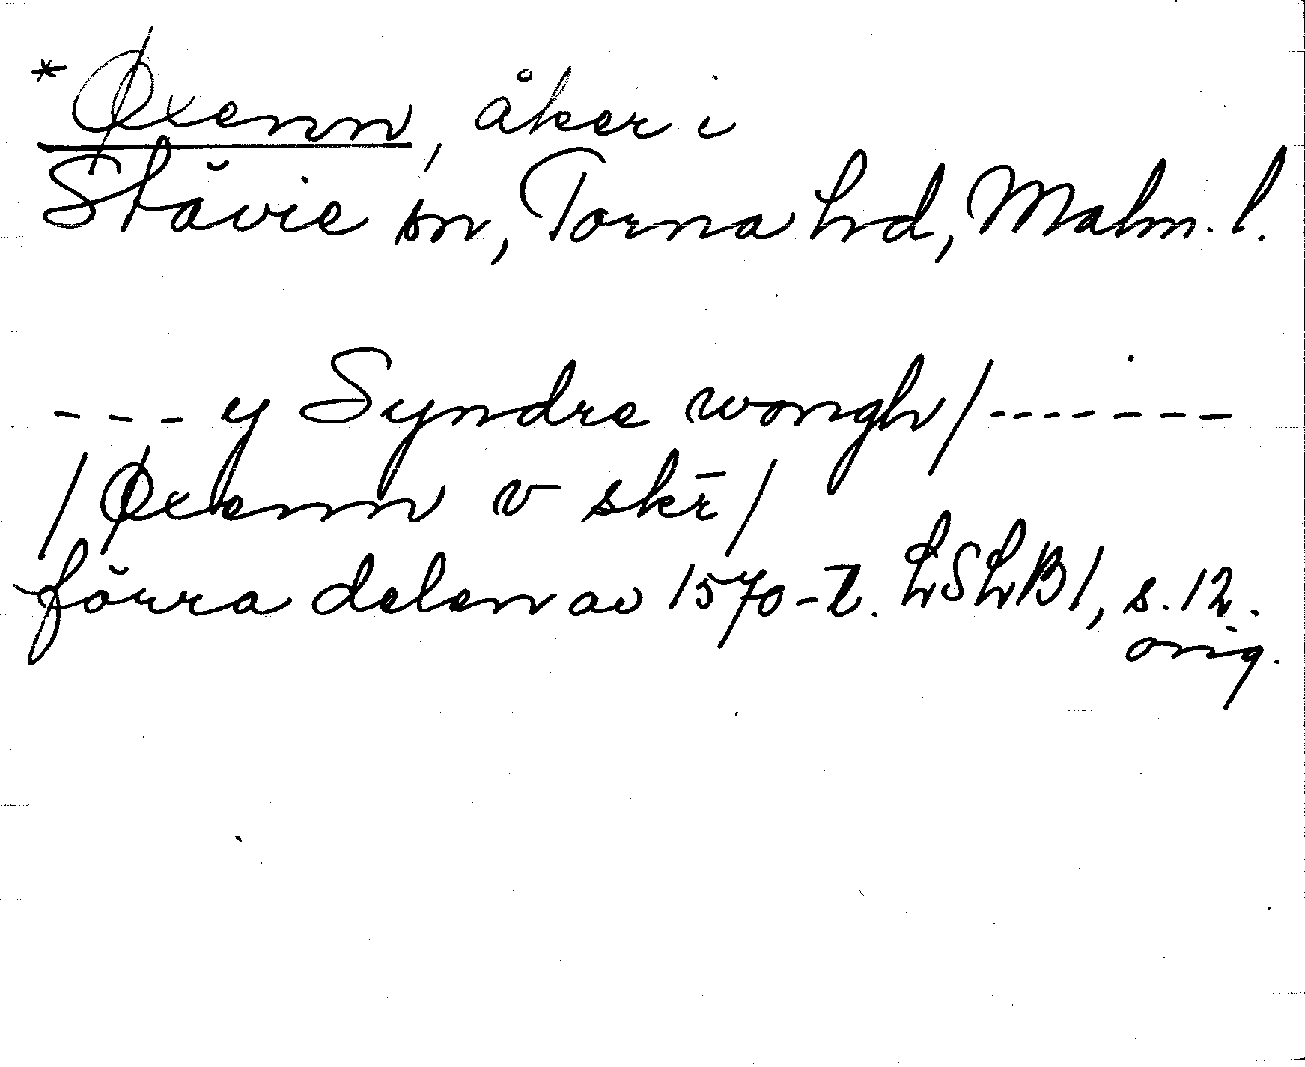 *Øxenn, åker i
Stävie sn, Torna hd, Malm. l.
--- y Syndre wongh/-------
/Øxenn v skr̄/
förra delen av 1570-t. LSLB1, s. 12.
orig.